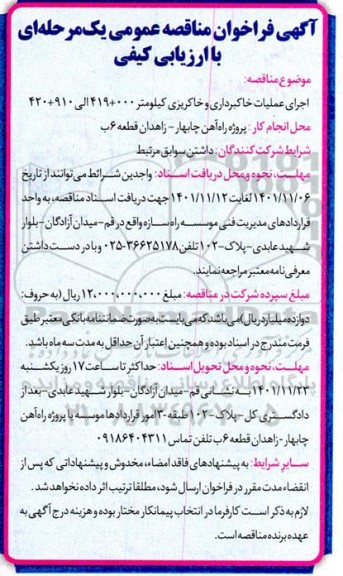 آگهی فراخوان مناقصه عمومی یک‌مرحله‌ای
با ارزیابی کیفی
موضوع مناقصه:
اجرای عملیات خاکبرداری و خاکریزی کیلومتر ۰۰۰+۴۱۹ الی ۹۱۰+۴۲۰
محل انجام کار: پروژه راه‌آهن چابهار - زاهدان قطعه ۶ب
شرایط شرکت کنندگان: داشتن سوابق مرتبط
مهلت، نحوه و محل دریافت اسناد: واجدین شرائط می‌توانند از تاریخ
۱۴۰۱/۱۱/۰۶ لغایت ۱۴۰۱/۱۱/۱۲ جهت دریافت اسناد مناقصه، به واحد
قراردادهای مدیریت فنی موسسه راه سازه واقع در قم - میدان آزادگان - بلوار
شهید عابدی - پلاک ۱۰۲ تلفن ۳۶۶۲۵۱۷۸-۰۲۵ و با در دست داشتن
معرفی نامه معتبر مراجعه نمایند.
مبلغ سپرده شرکت در مناقصه: مبلغ ۱۲،۰۰۰،۰۰۰،۰۰۰ ریال (به حروف:
دوازده میلیارد ریال) می‌باشد که می‌بایست به صورت ضمانتنامه بانکی معتبر طبق
فرمت مندرج در اسناد بوده و همچنین اعتبار آن حداقل به مدت سه ماه باشد.
مهلت، نحوه و محل تحویل اسناد: حداکثر تا ساعت ۱۷ روز یکشنبه
۱۴۰۱/۱۱/۲۳ به نشانی قم - میدان آزادگان - بلوار شهید عابدی - بعد از
دادگستری کل - پلاک ۱۰۲ طبقه ۳ امور قراردادها موسسه یا پروژه راه‌آهن
چابهار - زاهدان قطعه ۶ب تلفن تماس ۰۹۱۸۶۴۰۴۳۱۱
سایر شرایط: به پیشنهادهای فاقد امضاء، مخدوش و پیشنهاداتی که پس از
انقضاء مدت مقرر در فراخوان ارسال شود، مطلقا ترتیب اثر داده نخواهد شد.
لازم به ذکر است کارفرما در انتخاب پیمانکار مختار بوده و هزینه درج آگهی به
عهده برنده مناقصه است.